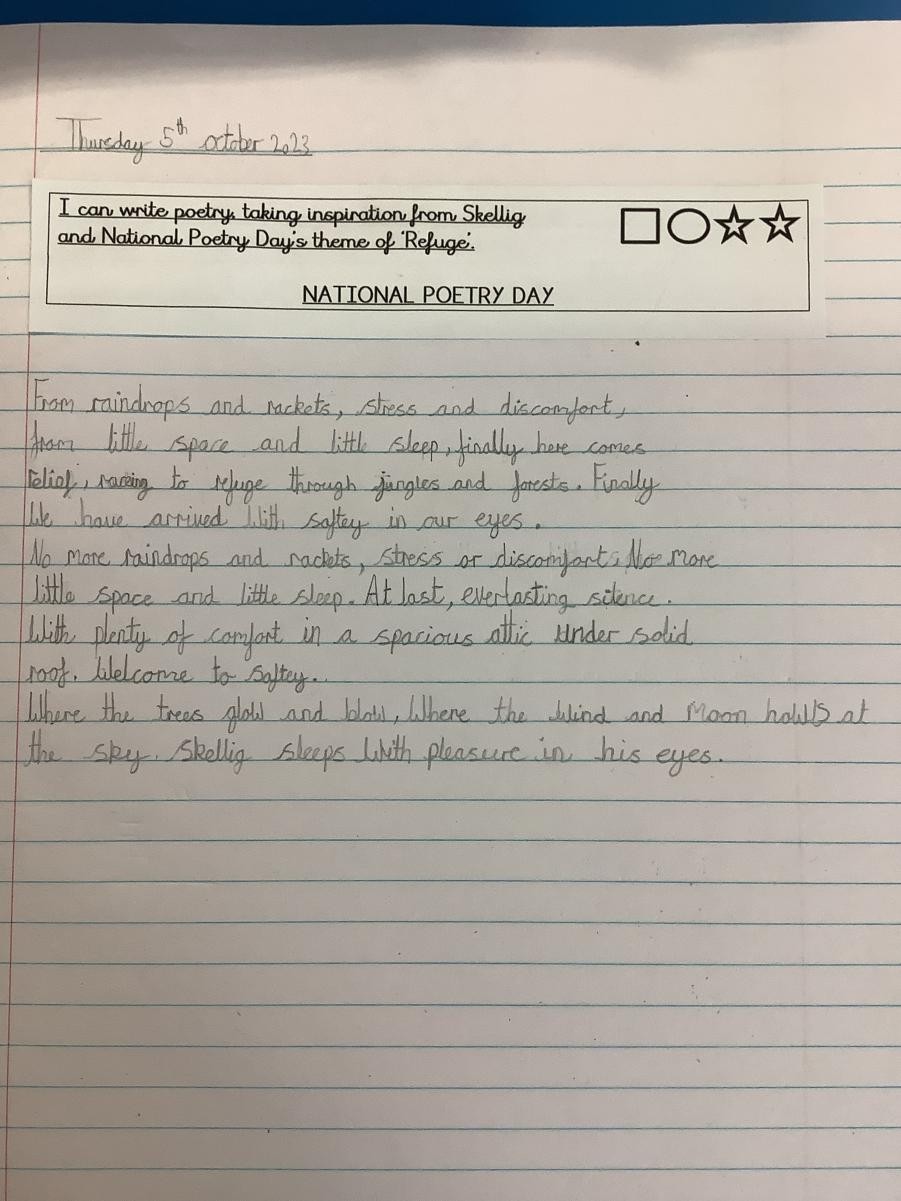 Thursday 5th october 2023
I can write poetry, taking inspiration from Skellig
and National Poetry Day's theme of 'Refuge'.
NATIONAL POETRY DAY
From raindrops and rackets, stress and discomfort,
from little space and little sleep, finally here comes
relief, racing to refuge through jungles and forests. Finally
We have arrived With saftey in our eyes.
No more raindrops and rackets, stress or discomfort; No more
little space and little sleep. At last, everlasting silence.
With plenty of comfort in a spacious attic under solid
roof. Welcome to saftey..
Where the trees glow and blow, Where the Wind and Moon howls at
the sky. Skellig sleeps With pleasure in his eyes.